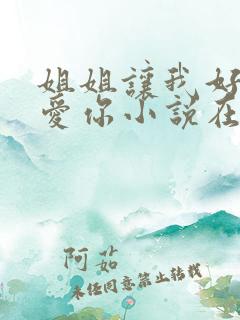 姐姐讓我好
愛你小說在
阿茹
未经同意禁止转载